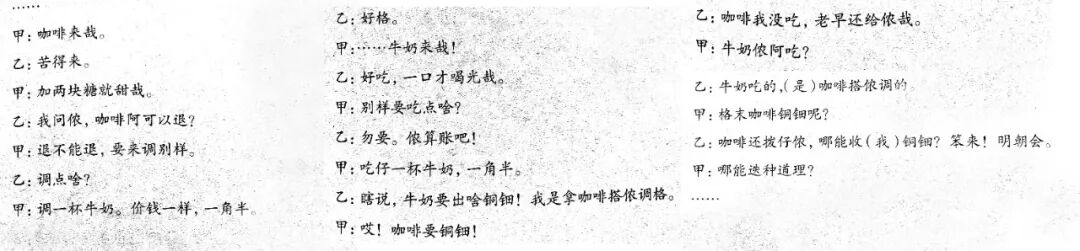 ……
甲：咖啡来哉。
乙：苦得来。
甲：加两块糖就甜哉。
乙：我问侬，咖啡阿可以退？
甲：退不能退，要来调别样。
乙：调点啥？
甲：调一杯牛奶。价钱一样，一角半。
乙：好格。
甲：……牛奶来哉！
乙：好吃，一口才喝光哉。
甲：别样要吃点啥？
乙：勿要。侬算账吧！
甲：吃仔一杯牛奶，一角半。
乙：瞎说，牛奶要出啥铜钿！我是拿咖啡搭侬调格。
甲：哎！咖啡要铜钿！
乙：咖啡我没吃，老早还给侬哉。
甲：牛奶侬阿吃？
乙：牛奶吃的，（是）咖啡搭侬调的。
甲：格末咖啡铜钿呢？
乙：咖啡还拨仔侬，哪能收（我）铜钿？笨来！明朝会。
甲：哪能迭种道理？
……